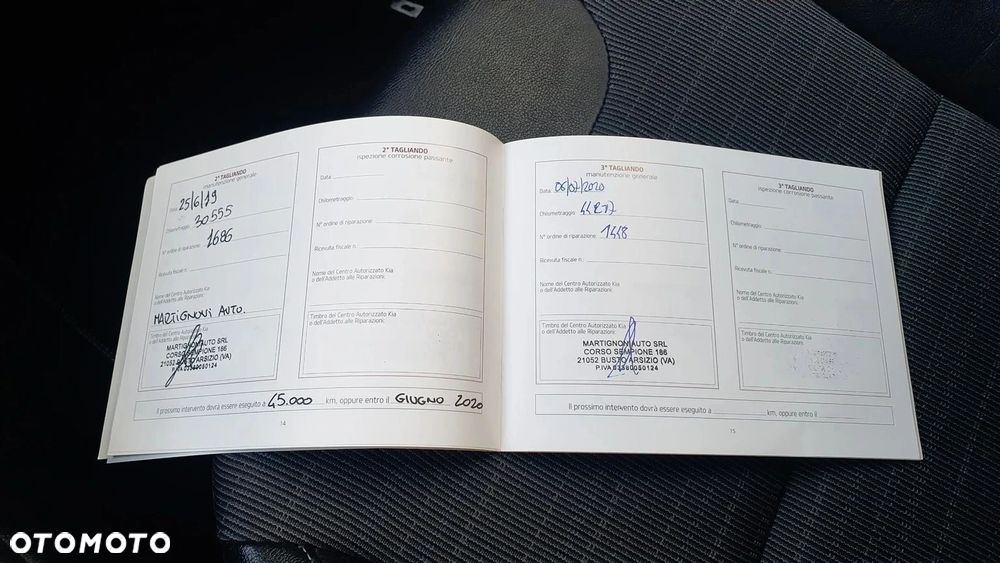 2° TAGLIANDO
manutenzione generale
Data 25/6/19
Chilometraggio: 30555
N° ordine di riparazione: 1686
Ricevuta fiscale n.:
Nome del Centro Autorizzato Kia
o dell'Addetto alle Riparazioni:
MARTIGNONI AUTO.
Timbro del Centro Autorizzato Kia
o dell'Addetto alle Riparazioni:
MARTIGNON AUTO SRL
CORSO SEMPIONE 186
21052 BUSTO ARSIZIO (VA)
P.IVA 03380050124
2° TAGLIANDO
ispezione corrosione passante
Data
Chilometraggio:
N° ordine di riparazione:
Ricevuta fiscale n.:
Nome del Centro Autorizzato Kia
o dell'Addetto alle Riparazioni:
Timbro del Centro Autorizzato Kia
o dell'Addetto alle Riparazioni:
Il prossimo intervento dovrà essere eseguito a 45.000 km, oppure entro il GIUGNO 2020
14
3° TAGLIANDO
manutenzione generale
Data 06/07/2020
Chilometraggio:
N° ordine di riparazione: 1448
Ricevuta fiscale n.:
Nome del Centro Autorizzato Kia
o dell'Addetto alle Riparazioni:
Timbro del Centro Autorizzato Kia
o dell'Addetto alle Riparazioni:
MARTIGNON AUTO SRL
CORSO SEMPIONE 186
21052 BUSTO ARSIZIO (VA)
P.IVA 03380050124
3° TAGLIANDO
ispezione corrosione passante
Data
Chilometraggio:
N° ordine di riparazione:
Ricevuta fiscale n.:
Nome del Centro Autorizzato Kia
o dell'Addetto alle Riparazioni:
Timbro del Centro Autorizzato Kia
o dell'Addetto alle Riparazioni:
Il prossimo intervento dovrà essere eseguito a km, oppure entro il
15
OTOMOTO